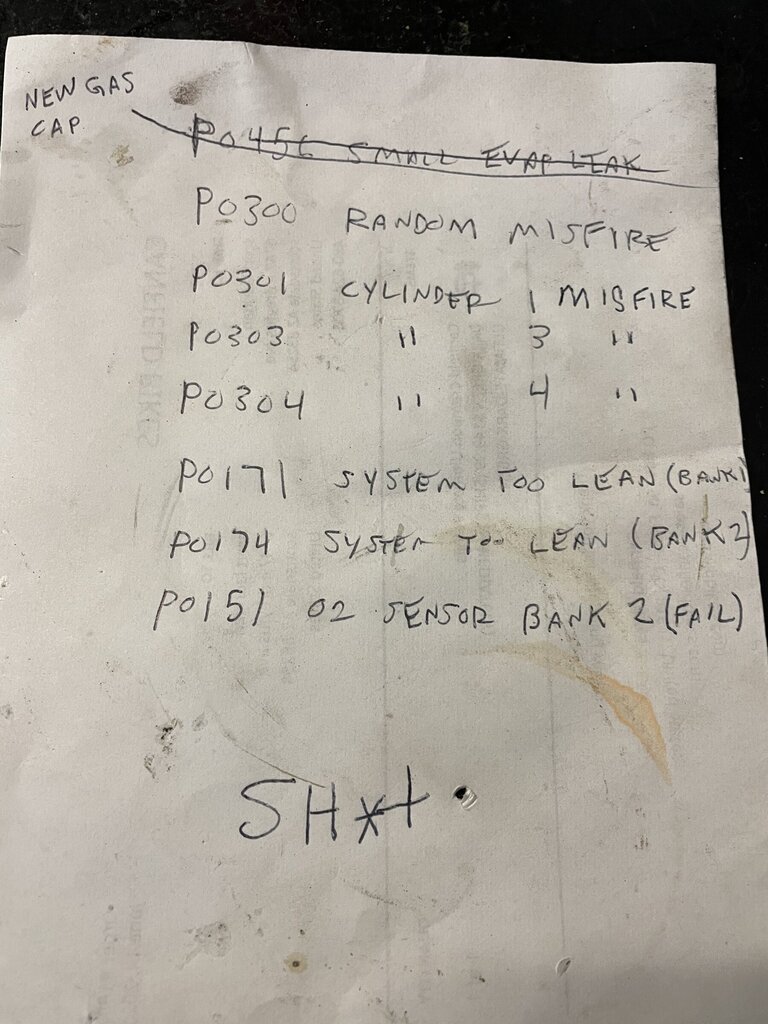 NEW GAS
CAP
P0456 SMALL EVAP LEAK
P0300 RANDOM MISFIRE
P0301 CYLINDER 1 MISFIRE
P0303 " 3 "
P0304 " 4 "
P0171 SYSTEM TOO LEAN (BANK 1)
P0174 SYSTEM TOO LEAN (BANK 2)
P0151 O2 SENSOR BANK 2 (FAIL)
SH*t